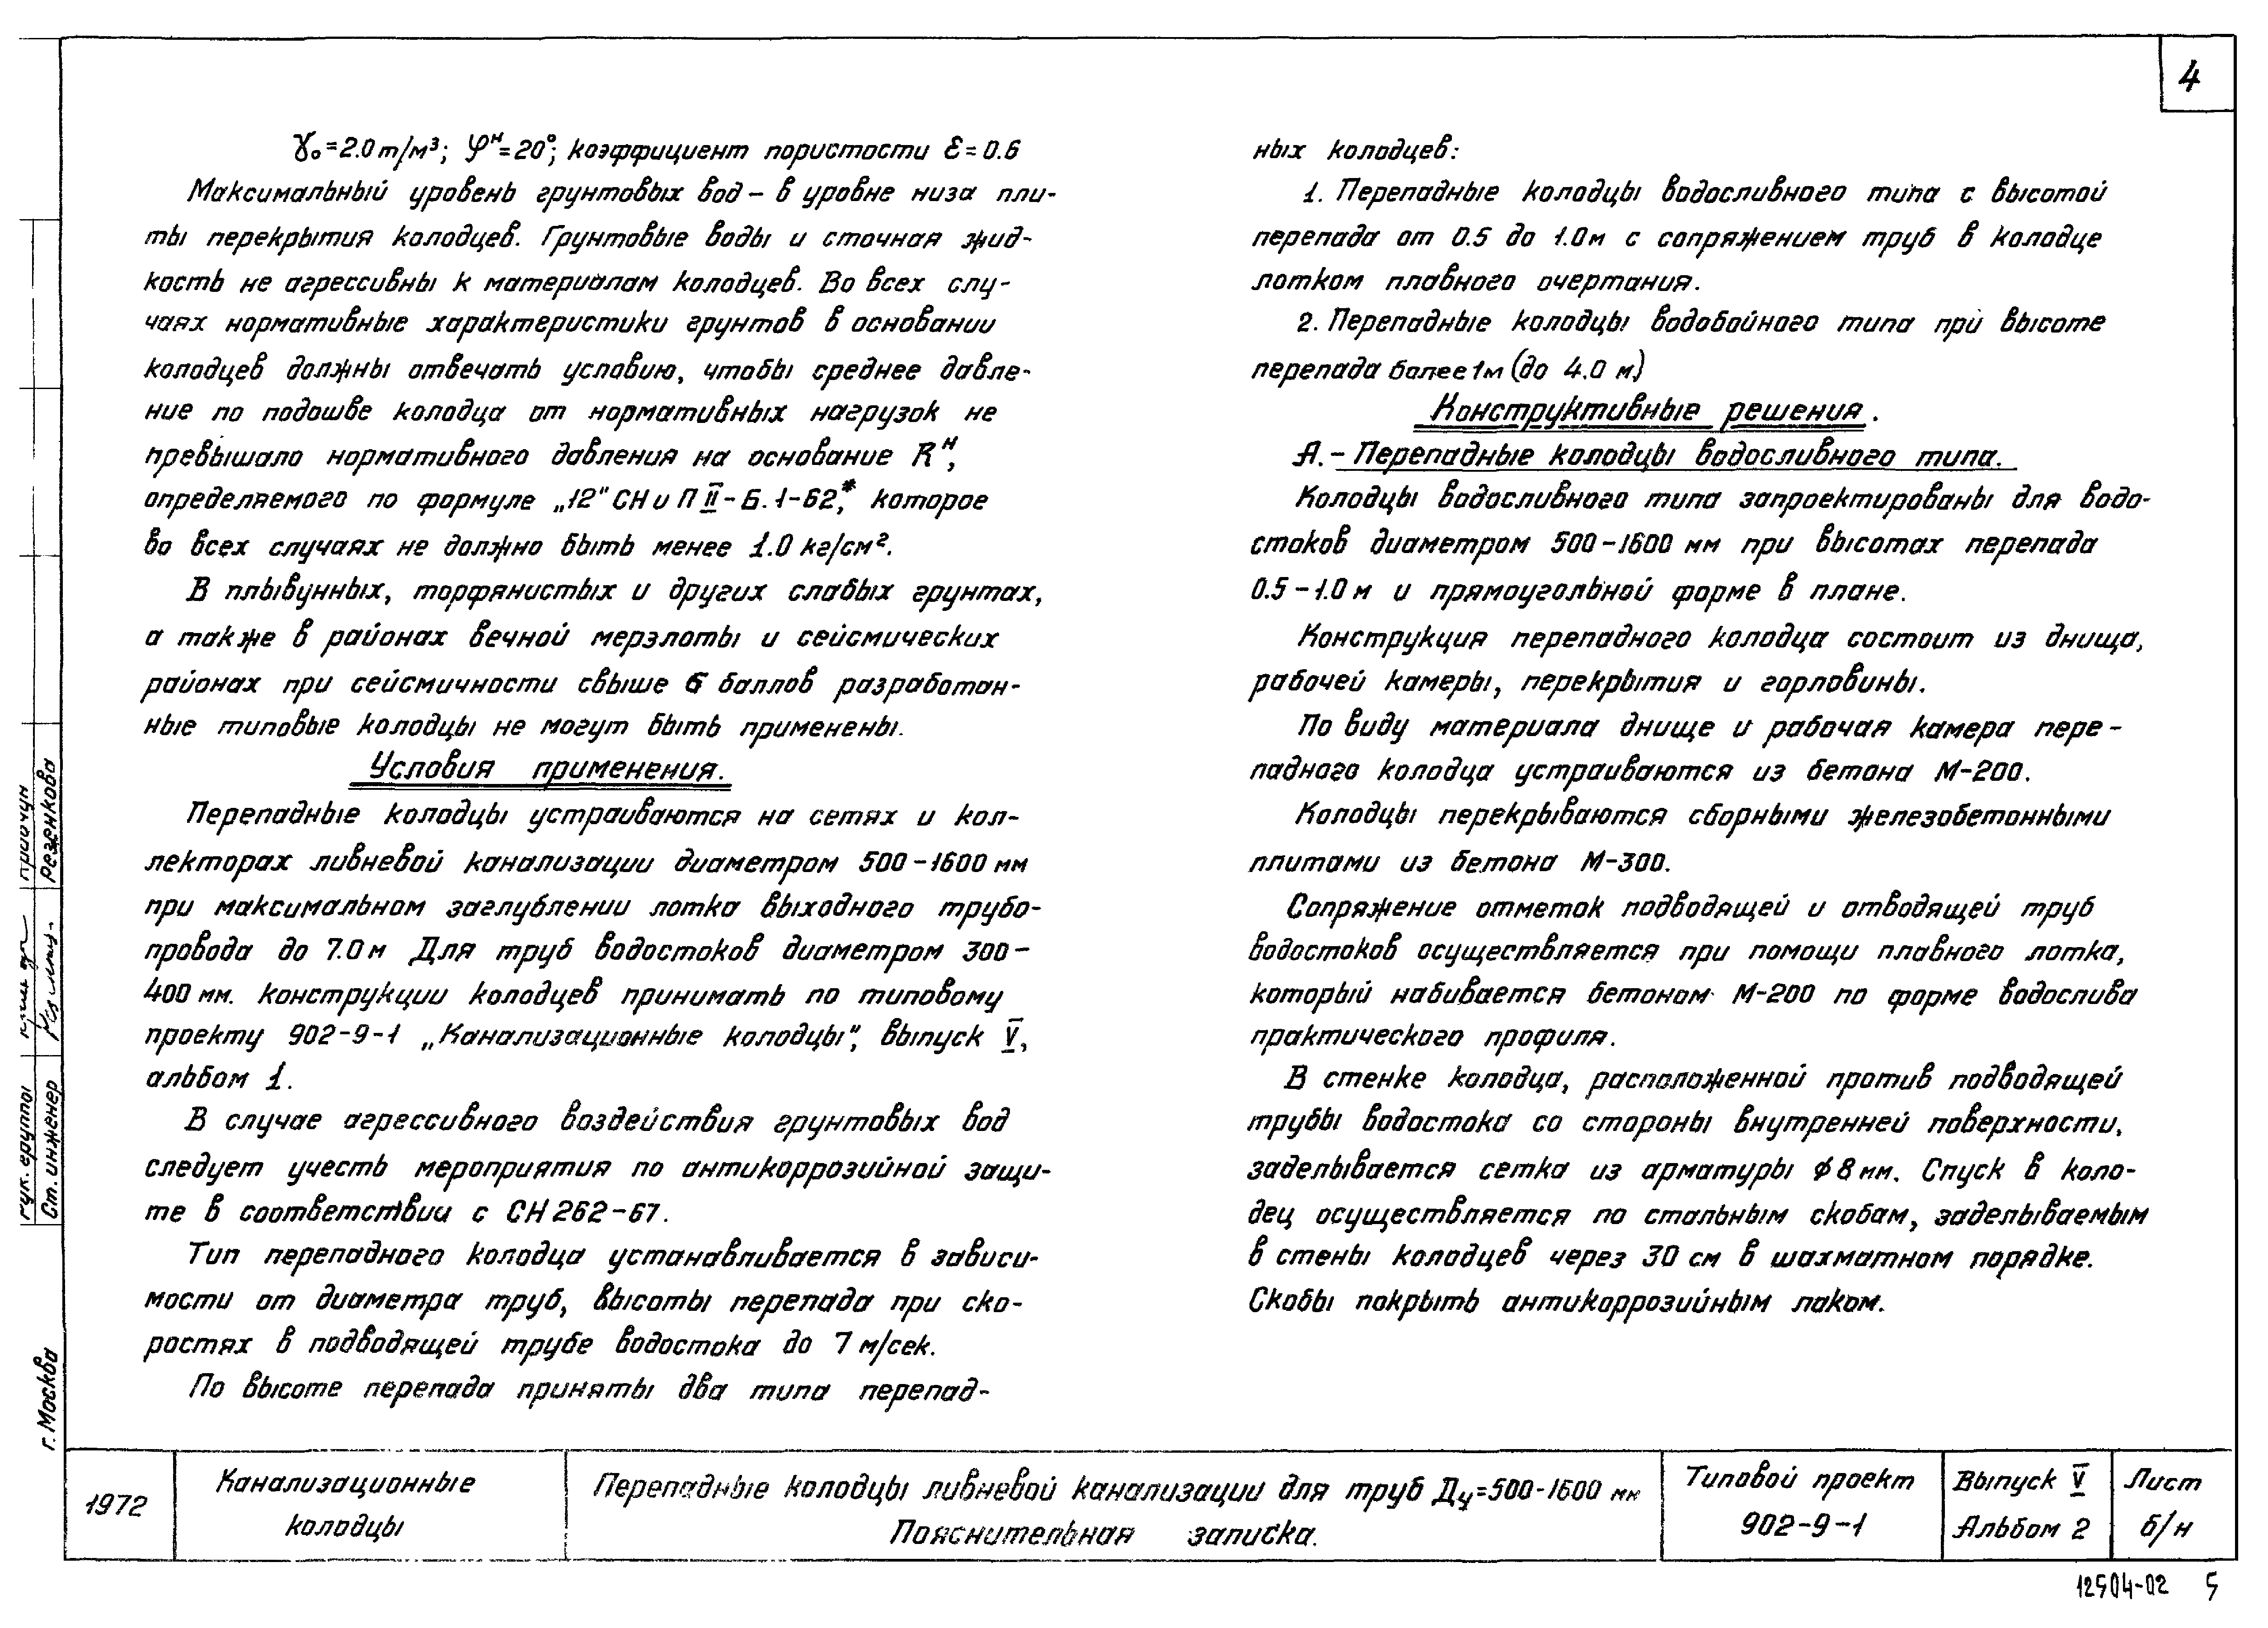 4
γ₀=2.0т/м³; φᴴ=20°; коэффициент пористости Ɛ=0.6
Максимальный уровень грунтовых вод – в уровне низа пли-
ты перекрытия колодцев. Грунтовые воды и сточная жид-
кость не агрессивны к материалам колодцев. Во всех слу-
чаях нормативные характеристики грунтов в основании
колодцев должны отвечать условию, чтобы среднее давле-
ние по подошве колодца от нормативных нагрузок не
превышало нормативного давления на основание Rᴴ,
определяемого по формуле „12" СН и П II-Б.1-62*, которое
во всех случаях не должно быть менее 1.0 кг/см².
В плывунных, торфянистых и других слабых грунтах,
а также в районах вечной мерзлоты и сейсмических
районах при сейсмичности свыше 6 баллов разработан-
ные типовые колодцы не могут быть применены.
Условия применения.
Перепадные колодцы устраиваются на сетях и кол-
лекторах ливневой канализации диаметром 500-1600 мм
при максимальном заглублении лотка выходного трубо-
провода до 7.0м Для труб водостоков диаметром 300-
400 мм. конструкции колодцев принимать по типовому
проекту 902-9-1 „Канализационные колодцы", выпуск V,
альбом 1.
В случае агрессивного воздействия грунтовых вод
следует учесть мероприятия по антикоррозийной защи-
те в соответствии с СН 262-67.
Тип перепадного колодца устанавливается в зависи-
мости от диаметра труб, высоты перепада при ско-
ростях в подводящей трубе водостока до 7 м/сек.
По высоте перепада приняты два типа перепад-
ных колодцев:
1. Перепадные колодцы водосливного типа с высотой
перепада от 0.5 до 1.0м с сопряжением труб в колодце
лотком плавного очертания.
2. Перепадные колодцы водобойного типа при высоте
перепада более 1м (до 4.0 м)
Конструктивные решения.
А.- Перепадные колодцы водосливного типа.
Колодцы водосливного типа запроектированы для водо-
стоков диаметром 500-1600 мм при высотах перепада
0.5-1.0 м и прямоугольной форме в плане.
Конструкция перепадного колодца состоит из днища,
рабочей камеры, перекрытия и горловины.
По виду материала днище и рабочая камера пере-
падного колодца устраиваются из бетона М-200.
Колодцы перекрываются сборными железобетонными
плитами из бетона М-300.
Сопряжение отметок подводящей и отводящей труб
водостоков осуществляется при помощи плавного лотка,
который набивается бетоном М-200 по форме водослива
практического профиля.
В стенке колодца, расположенной против подводящей
трубы водостока со стороны внутренней поверхности,
заделывается сетка из арматуры ϕ 8 мм. Спуск в коло-
дец осуществляется по стальным скобам, заделываемым
в стены колодцев через 30 см в шахматном порядке.
Скобы покрыть антикоррозийным лаком.
рук. группы
Ст. инженер
Резенкова
г. Москва
1972
Канализационные
колодцы
Перепадные колодцы ливневой канализации для труб Ду=500-1600 мм
Пояснительная записка.
Типовой проект
902-9-1
Выпуск V
Альбом 2
Лист
б/н
12504-02 5